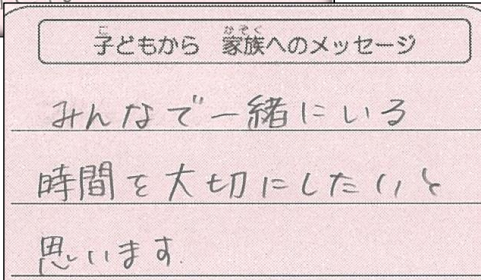 子どもから 家族へのメッセージ
みんなで一緒にいる
時間を大切にしたいと
思います.